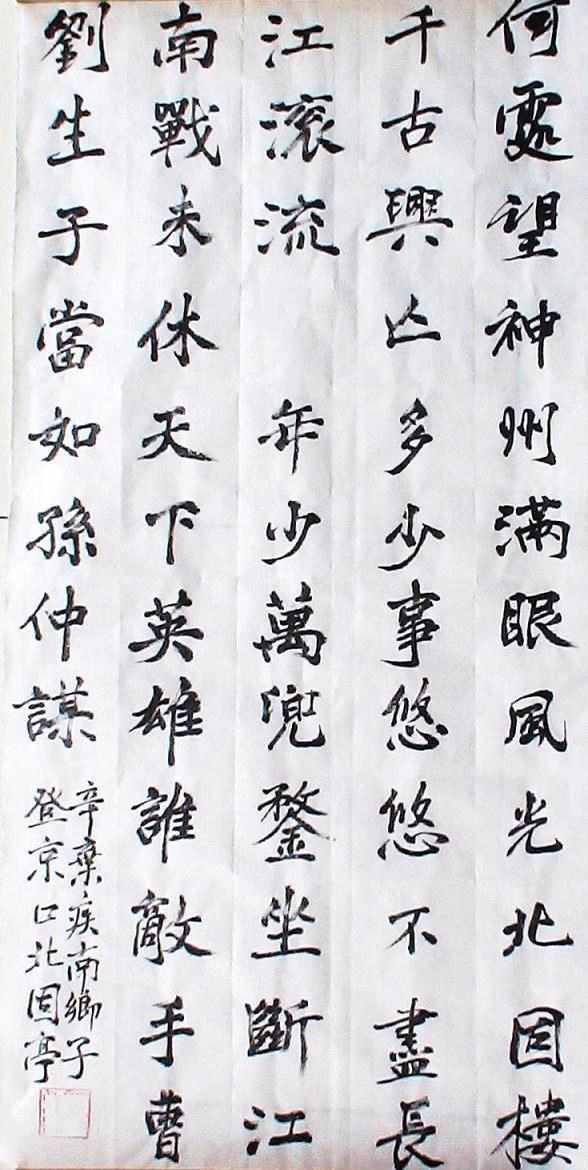 何處望神州滿眼風光北固樓
千古興亡多少事悠悠不盡長
江滚流 年少萬兜鍪坐斷江
南戰未休天下英雄誰敵手曹
劉生子當如孫仲謀
辛棄疾南鄉子
登京口北固亭